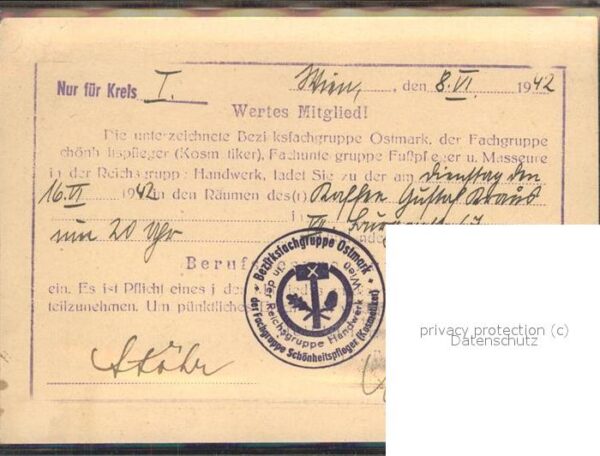 Nur für Kreis I.
Wien, , den 8. VI. 1942
Wertes Mitglied!
Die unterzeichnete Bezirksfachgruppe Ostmark, der Fachgruppe
Schönheitspfleger (Kosmetiker), Fachuntergruppe Fußpfleger u. Masseure
in der Reichsgruppe Handwerk, ladet Sie zu der am Dienstag den
16. VI 1942 in den Räumen des(r) Kaffee Gustav Kraus
in VII.
um 20 Uhr
Beruf
ein. Es ist Pflicht eines j
teilzunehmen. Um pünktliches
Stöhr
Bezirksfachgruppe Ostmark
der Fachgruppe Schönheitspfleger (Kosmetiker)
in der Reichsgruppe Handwerk Wien
privacy protection (c)
Datenschutz